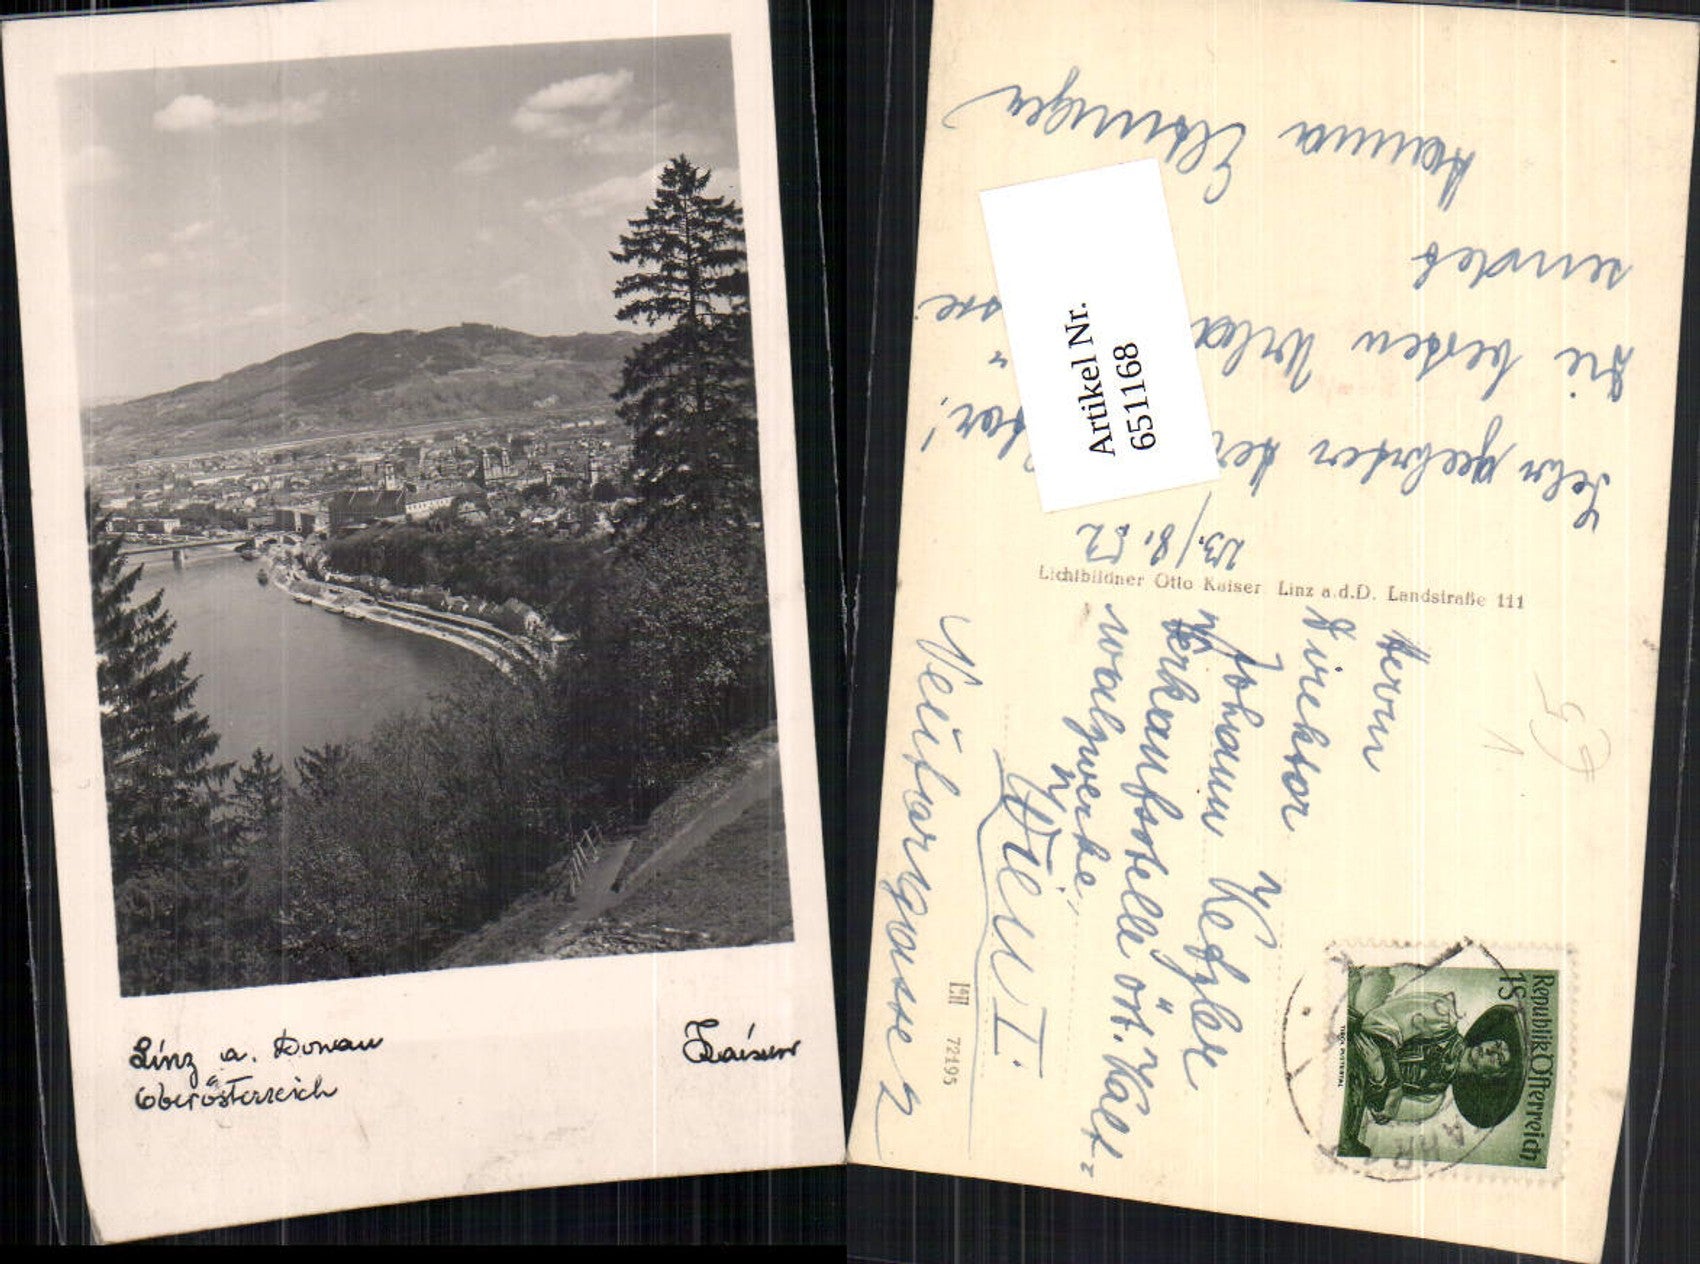 Linz a. Donau
Oberösterreich
Kaiser
Artikel Nr.
651168
23./8. 52
Sehr geehrter Herr
Die besten Urlaubs
sendet
Hanna
Lichtbildner Otto Kaiser Linz a.d.D. Landstraße 111
Herrn
Direktor
Johann
Verkaufsstelle öst. Kalt=
walzwerke,
Wien I.
Neutorgasse 2
72195
Republik Österreich
1S